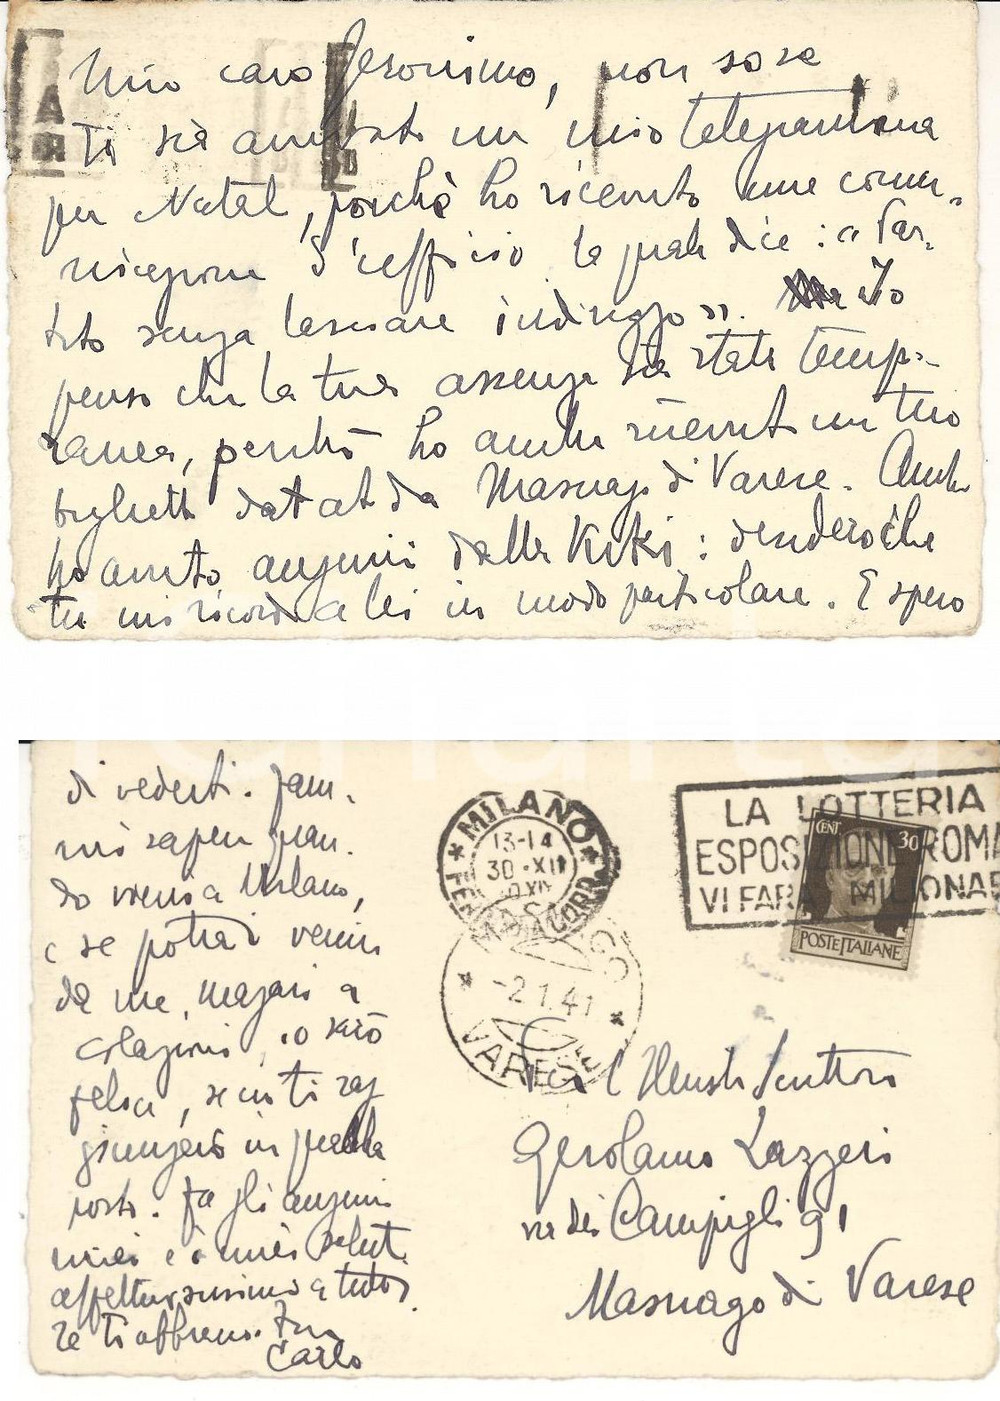 Mio caro Geronimo, non so se
ti sia arrivato un mio telegramma
per Natal, poichè ho ricevuto una comu-
nicazione d'ufficio la quale dice: "Par-
tito senza lasciare indirizzo". Io
penso che la tua assenza sia stata tempo-
ranea, perchè ho anche ricevuto un tuo
biglietto datato da Masnago di Varese. Anche
ho avuto auguri dalla Kiki: desidero che
tu mi ricordi a lei in modo particolare. E spero
di vederti. Fam-
mi sapere quan-
do vieni a Milano,
e se potrai venire
da me, magari a
colazione, io sarò
felice, se
giungerò in quella
. Fa gli auguri
miei e i miei saluti
affettuosissimi a tutti,
e ti abbraccio. Tuo
Carlo
MILANO
13-14
30·XII
FERROVIA CORR.
LA LOTTERIA
ESPOSIZIONE ROMA
VI FARÀ MILIONAR
CENT 30
POSTE ITALIANE
MASNAGO
-2.1.41
VARESE
l'Illustre Scrittore
Gerolamo Lazzeri
via dei Campigli 91
Masnago di Varese